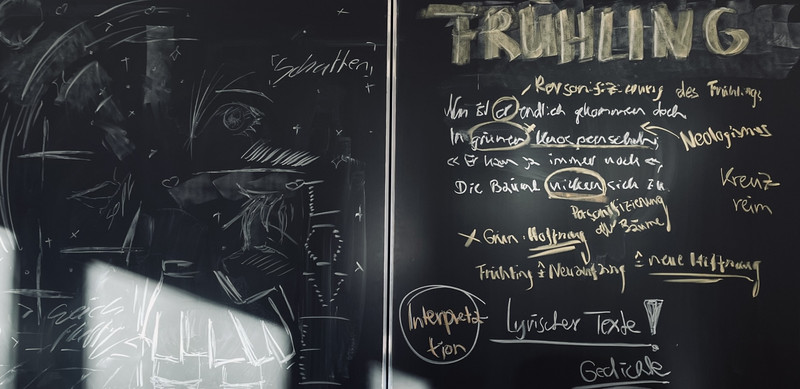 [Schatten]
FRÜHLING
Personifizierung des Frühlings
Nun ist er endlich gekommen doch
In grünem Knospenschuh;
Neologismus
« Er kam ja immer noch «,
Die Bäume nicken sich zu.
Kreuz-
reim
Personifizierung
der Bäume
x Grün: Hoffnung
Frühling ≙ Neuanfang ≙ neue Hoffnung
Interpreta-
tion
Lyrischer Texte!
Gedichte